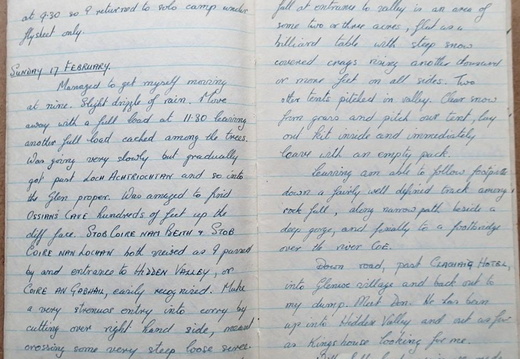 at 9.30 so I returned to solo camp under
flysheet only.
SUNDAY 17 FEBRUARY.
Managed to get myself moving
at nine. Slight drizzle of rain. Move
away with a full load at 11.30 leaving
another full load cached among the trees.
Was going very slowly but gradually
got past LOCH ACHTRIOCHTAN and so into
the Glen proper. Was amazed to find
OSSIANS CAVE hundreds of feet up the
cliff face. STOB COIRE NAN BEITH & STOB
COIRE NAN LOCHAN both noticed as I passed
by and entrance to HIDDEN VALLEY, or
COIRE AN GABHAIL, easily recognized. Make
a very strenuous entry into corry by
cutting over right hand side, means
crossing some very steep loose scree.
fall at entrance to valley is an area of
some two or three acres, flat as a
billiard table with steep snow
covered crags rising another thousand
or more feet on all sides. Two
other tents pitched in valley. Clear snow
from grass and pitch our tent, lay
out kit inside and immediately
leave with an empty pack.
Leaving am able to follow footpath
down a fairly well defined track among
rock fall, along narrow path beside a
deep gorge, and finally to a footbridge
over the river COE.
Down road, past CLACHAIG HOTEL,
into Glencoe village and back out to
my dump. Meet Don. He has been
up into Hidden Valley and out as far
as Kingshouse looking for me.